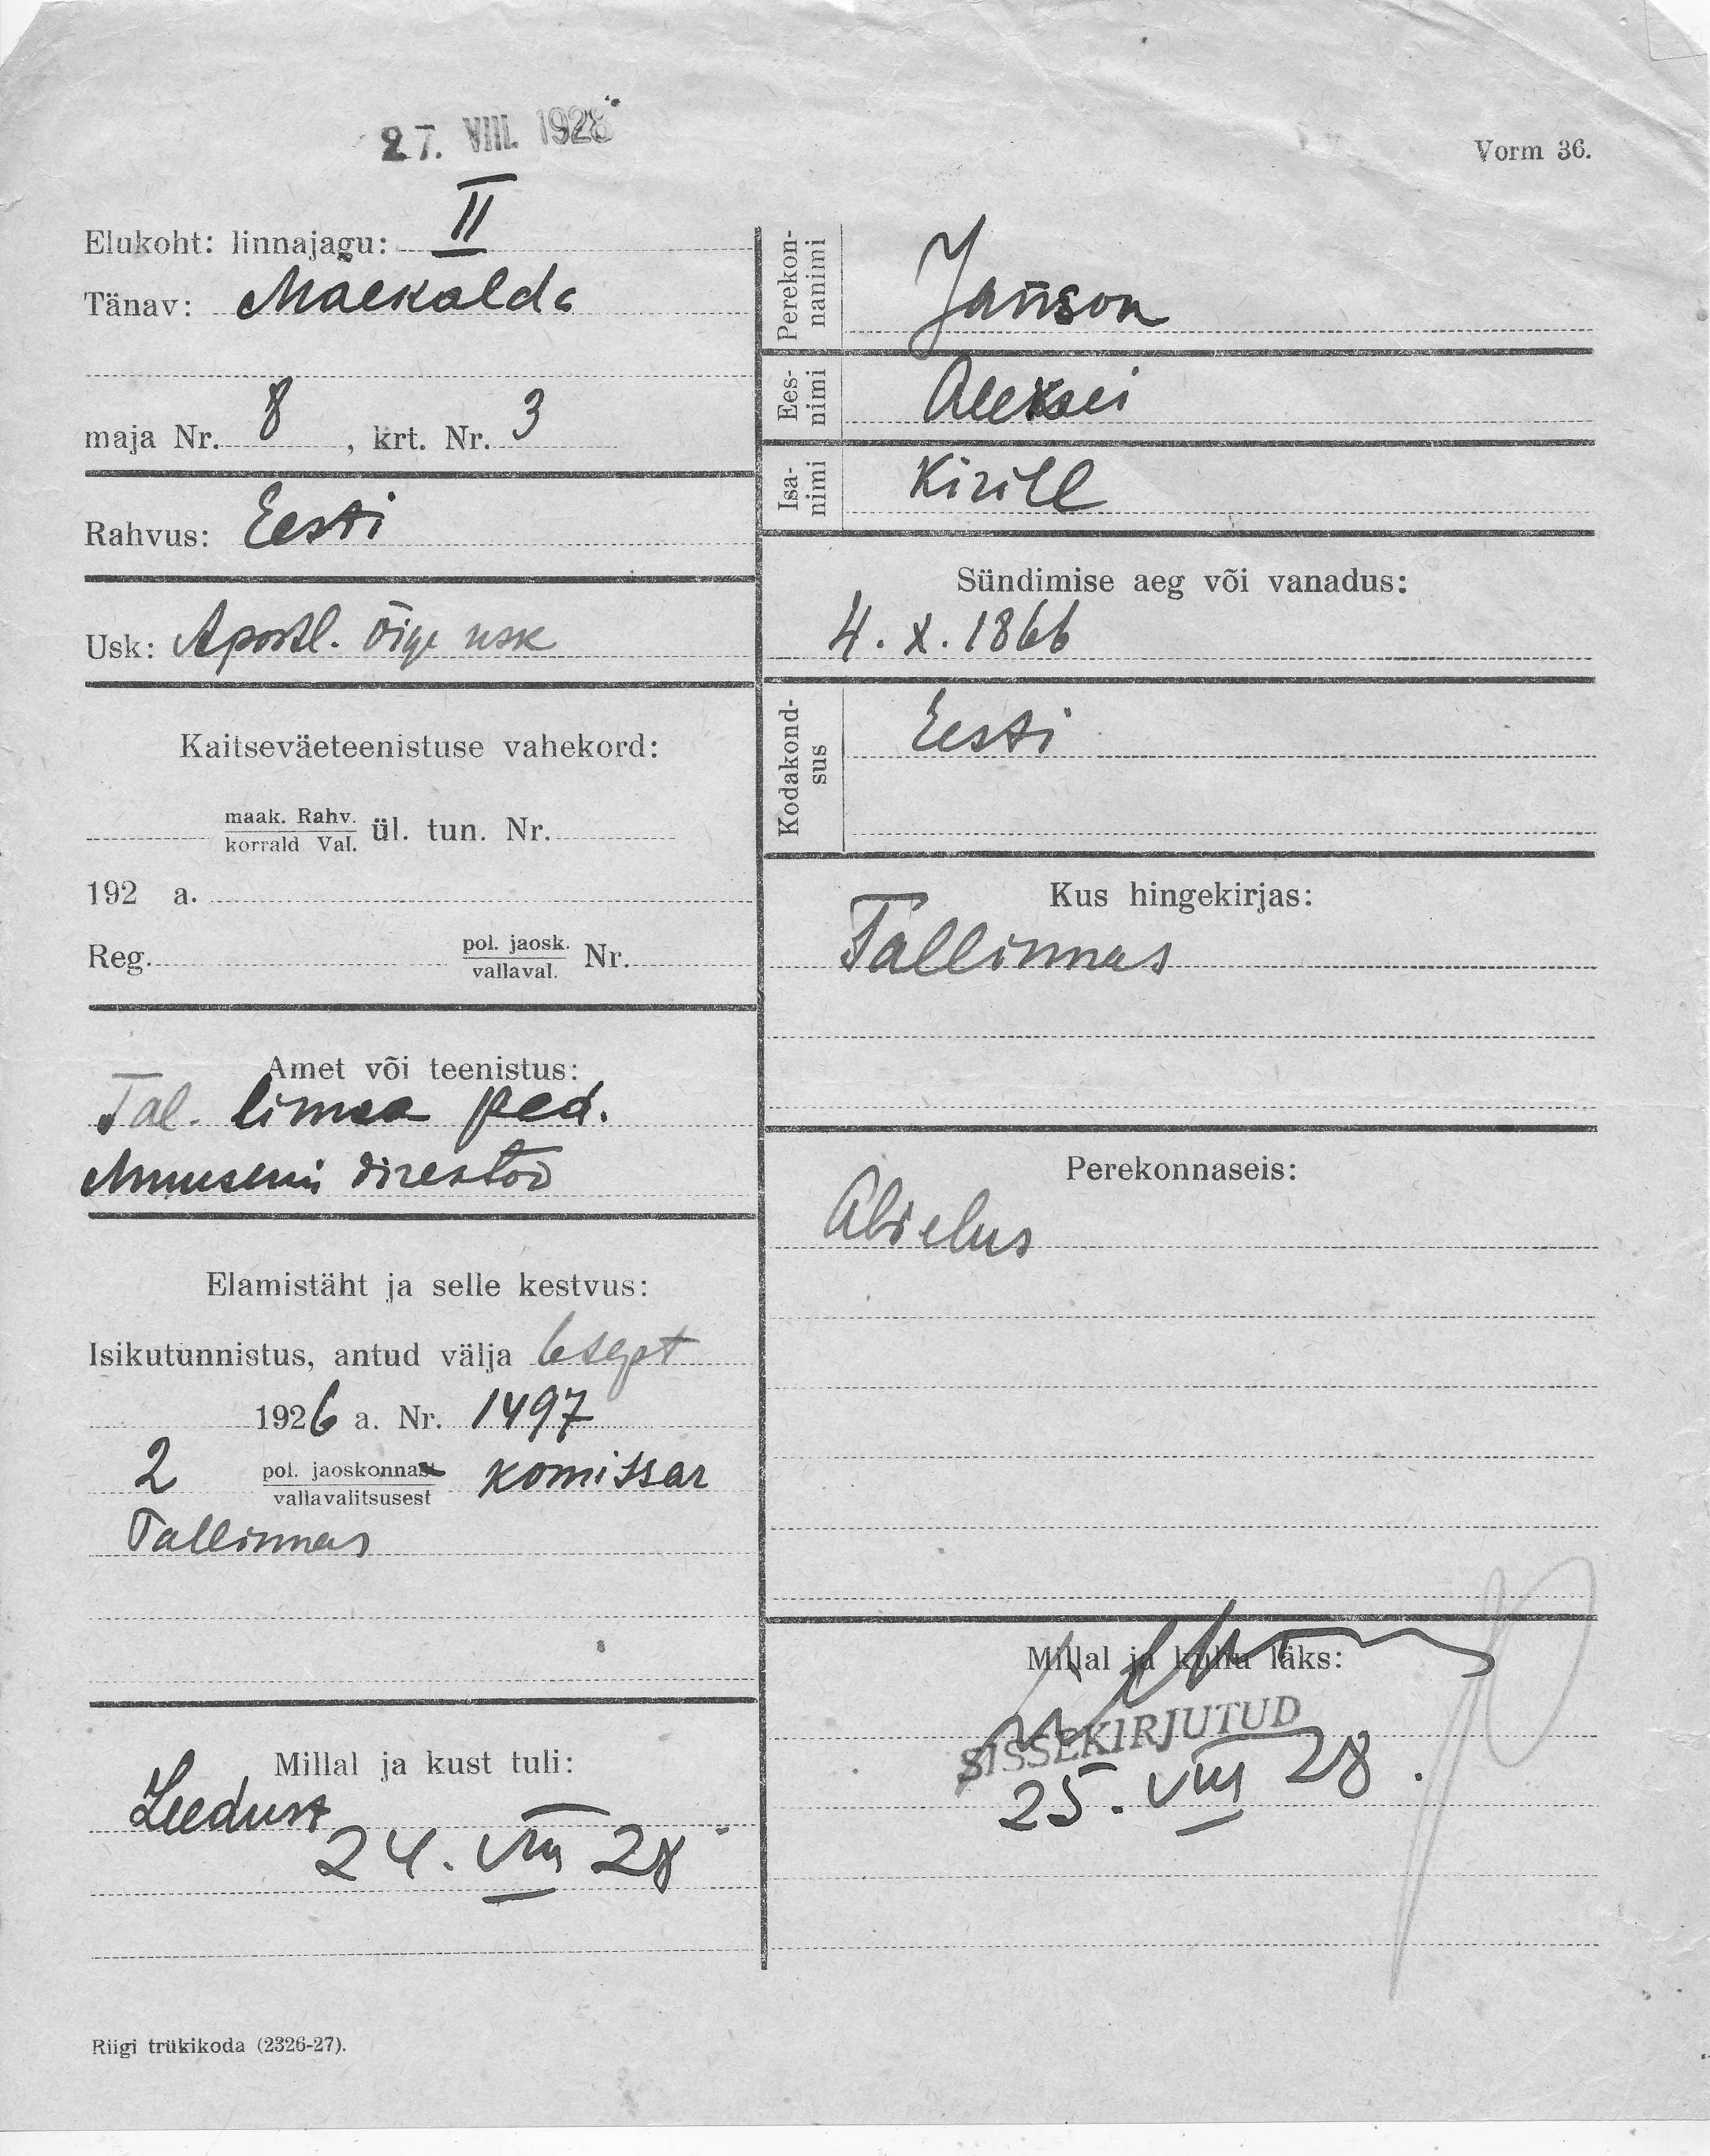 27. VIII. 1928
Vorm 36.
Elukoht: linnajagu: II
Tänav: Mäekalda
maja Nr. 8, krt. Nr. 3
Rahvus: Eesti
Usk: Apostl. õige usk
Kaitseväeteenistuse vahekord:
maak. Rahv.
korrald Val. ül. tun. Nr.
192 a.
Reg. pol. jaosk. Nr.
vallaval.
Amet või teenistus:
Tal. linna ped.
Muuseumi direktor
Elamistäht ja selle kestvus:
Isikutunnistus, antud välja 6 sept
1926 a. Nr. 1497
2 pol. jaoskonna komissar
vallavalitsusest
Tallinnas
Millal ja kust tuli:
Leedust
24. VIII 28
Riigi trükikoda (2326-27).
Perekon-
nanimi
Janson
Ees-
nimi
Aleksei
Isa-
nimi
Kirill
Sündimise aeg või vanadus:
4. X. 1866
Kodakond-
sus
Eesti
Kus hingekirjas:
Tallinnas
Perekonnaseis:
Abielus
Millal ja kuhu läks:
SISSEKIRJUTUD
25. VIII 28.